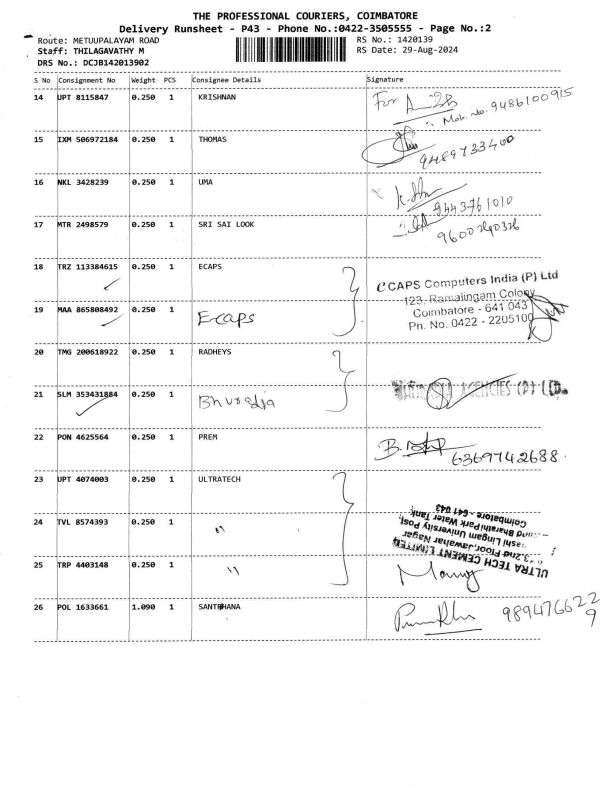 THE PROFESSIONAL COURIERS, COIMBATORE
Delivery Runsheet - P43 - Phone No.:0422-3505555 - Page No.:2
Route: METUUPALAYAM ROAD RS No.: 1420139
Staff: THILAGAVATHY M RS Date: 29-Aug-2024
DRS No.: DCJB142013902
S No Consignment No Weight PCS Consignee Details Signature
14 UPT 8115847 0.250 1 KRISHNAN For
Mob. No. 9486100915
15 IXM 506972184 0.250 1 THOMAS
9489733400
16 NKL 3428239 0.250 1 UMA
9443761010
17 MTR 2498579 0.250 1 SRI SAI LOOK
9600240326
18 TRZ 113384615 0.250 1 ECAPS
eCAPS Computers India (P) Ltd
123, Ramalingam Colony
Coimbatore - 641 043
Ph. No. 0422 - 2205100
19 MAA 865808492 0.250 1 Ecaps
20 TMG 200618922 0.250 1 RADHEYS
21 SLM 353431884 0.250 1 AGENCIES (P) LTD.
22 PON 4625564 0.250 1 PREM B.
6369742688.
23 UPT 4074003 0.250 1 ULTRATECH
24 TVL 8574393 0.250 1 "
ULTRA TECH CEMENT LIMITED
2nd Floor, Jawahar Nagar
Lingam University Post,
Bharathi Park Water Tank,
Coimbatore - 641 043
25 TRP 4403148 0.250 1 "
26 POL 1633661 1.090 1 SANTHANA
9894766229